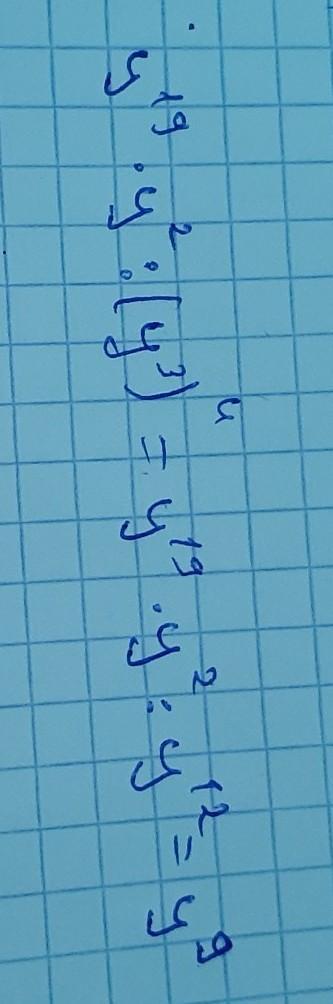 y¹⁹ · y² : (y³)⁴ = y¹⁹ · y² : y¹² = y⁹